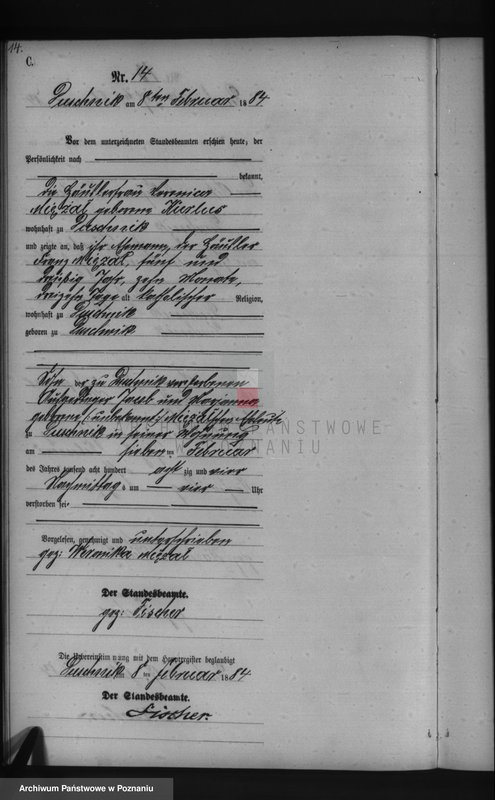 14.
C.
Nr. 14
Duschnik am 8ten Februar 1884
Vor dem unterzeichneten Standesbeamten erschien heute, der
Persönlichkeit nach
bekannt,
die Häuslerfrau Veronica
geborene
wohnhaft zu Duschnik
und zeigte an, daß ihr Ehemann, der Häusler
Franz fünf und
dreißig Jahr, zehn Monate,
dreizehn Tage alt katholischer Religion,
wohnhaft zu Duschnik
geboren zu Duschnik
Sohn der zu Duschnik verstorbenen
Jacob und Marianna
geborene (unbekannt) Eheleute
zu Duschnik in seiner Wohnung
am sieben ten Februar
des Jahres tausend acht hundert acht zig und vier
Nachmittag s um vier Uhr
verstorben sei
Vorgelesen, genehmigt und unterschrieben
gez: Weronika
Der Standesbeamte.
gez: Fischer
Die Uebereinstimmung mit dem Hauptregister beglaubigt
Duschnik am 8 ten Februar 1884
Der Standesbeamte.
Fischer.
ARCHIWUM PAŃSTWOWE
W POZNANIU
Archiwum Państwowe w Poznaniu